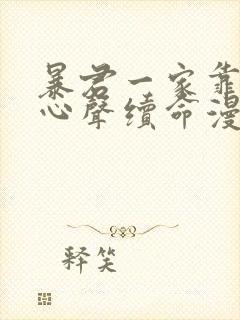 暴君一家靠
心聲續命漫
释笑